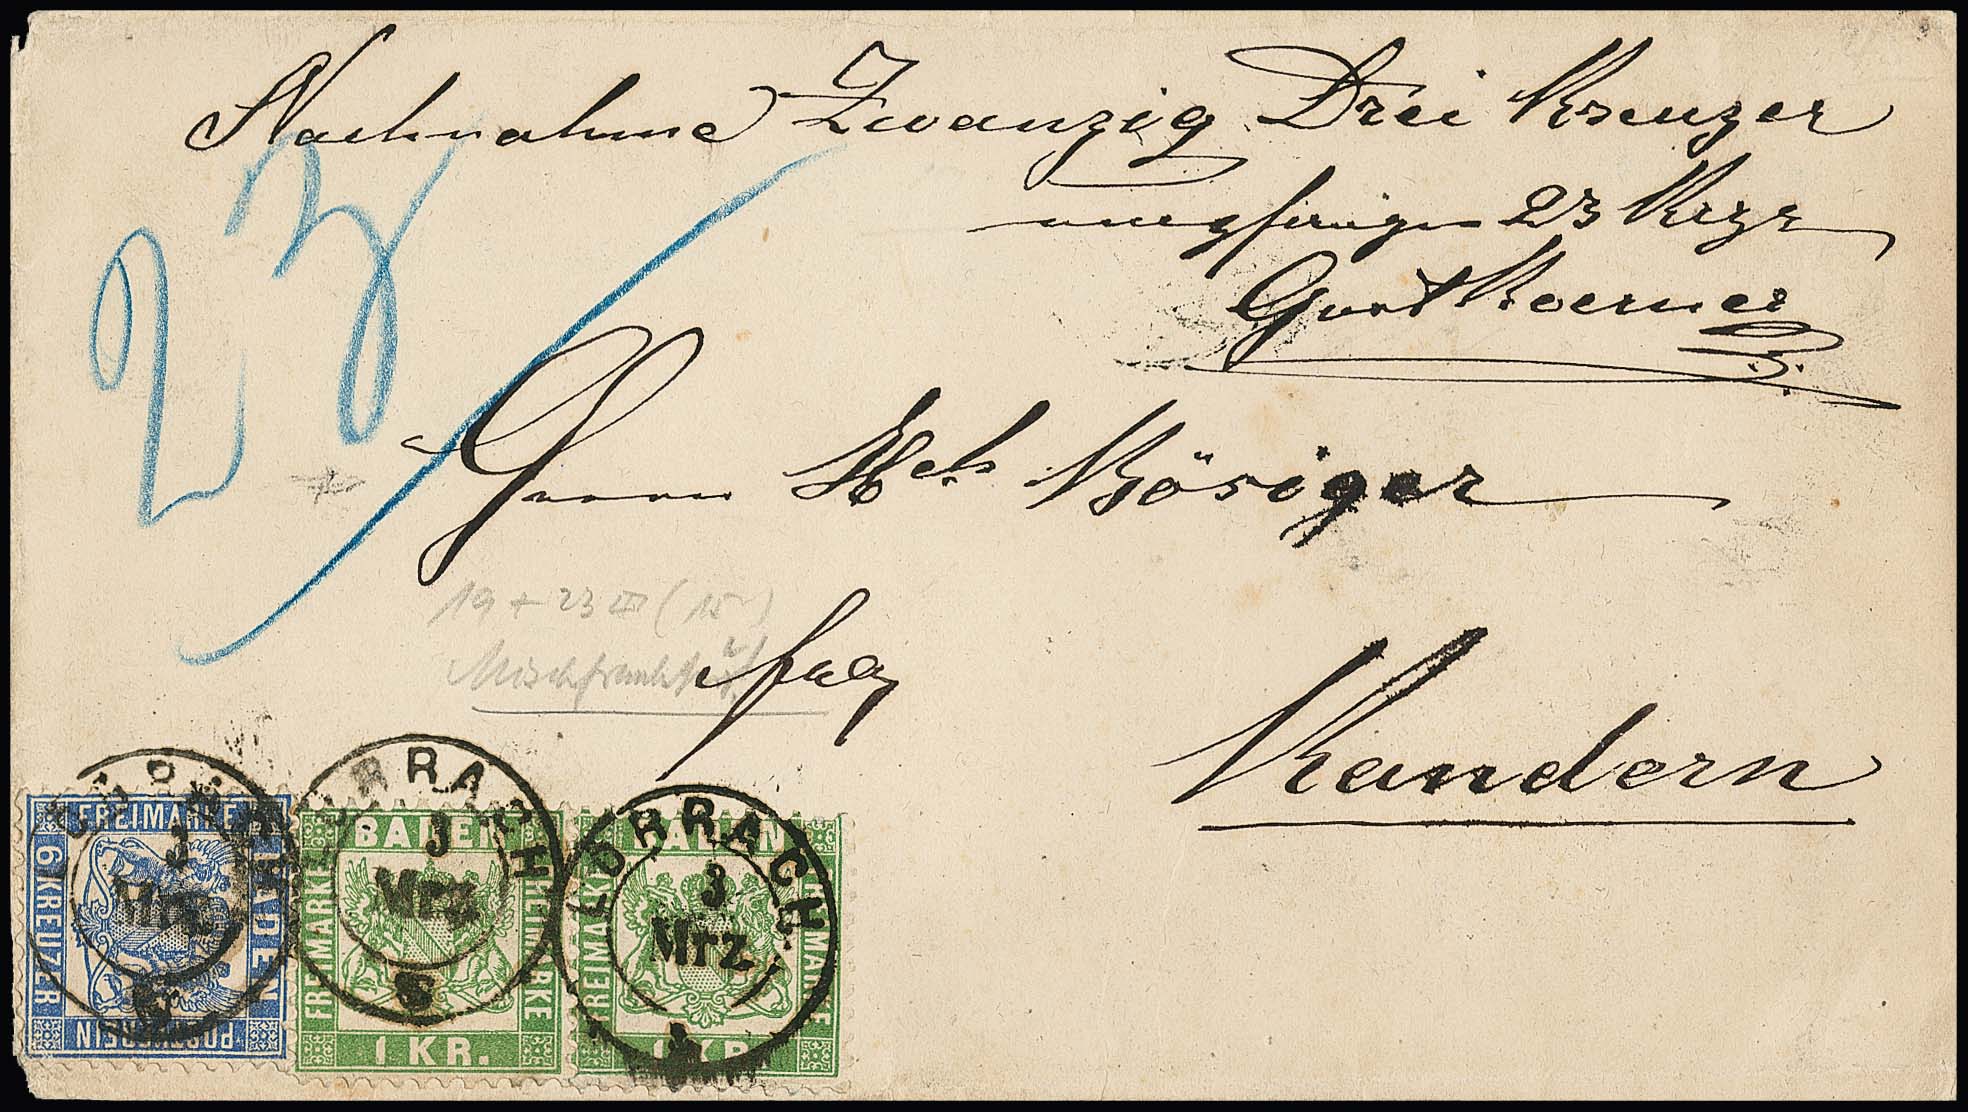 Nachnahme Zwanzig Drei Kreuzer
23 Krzr
Gust Koerner
23
Herrn Bösiger
19 + 23 III (15)
Mischfrankatur
frey
Kandern
FREIMARKE BADEN POSTVEREIN 6 KREUZER
LÖRRACH 3 Mrz
BADEN FREIMARKE FREIMARKE 1 KR.
LÖRRACH 3 Mrz
BADEN FREIMARKE FREIMARKE 1 KR.
LÖRRACH 3 Mrz